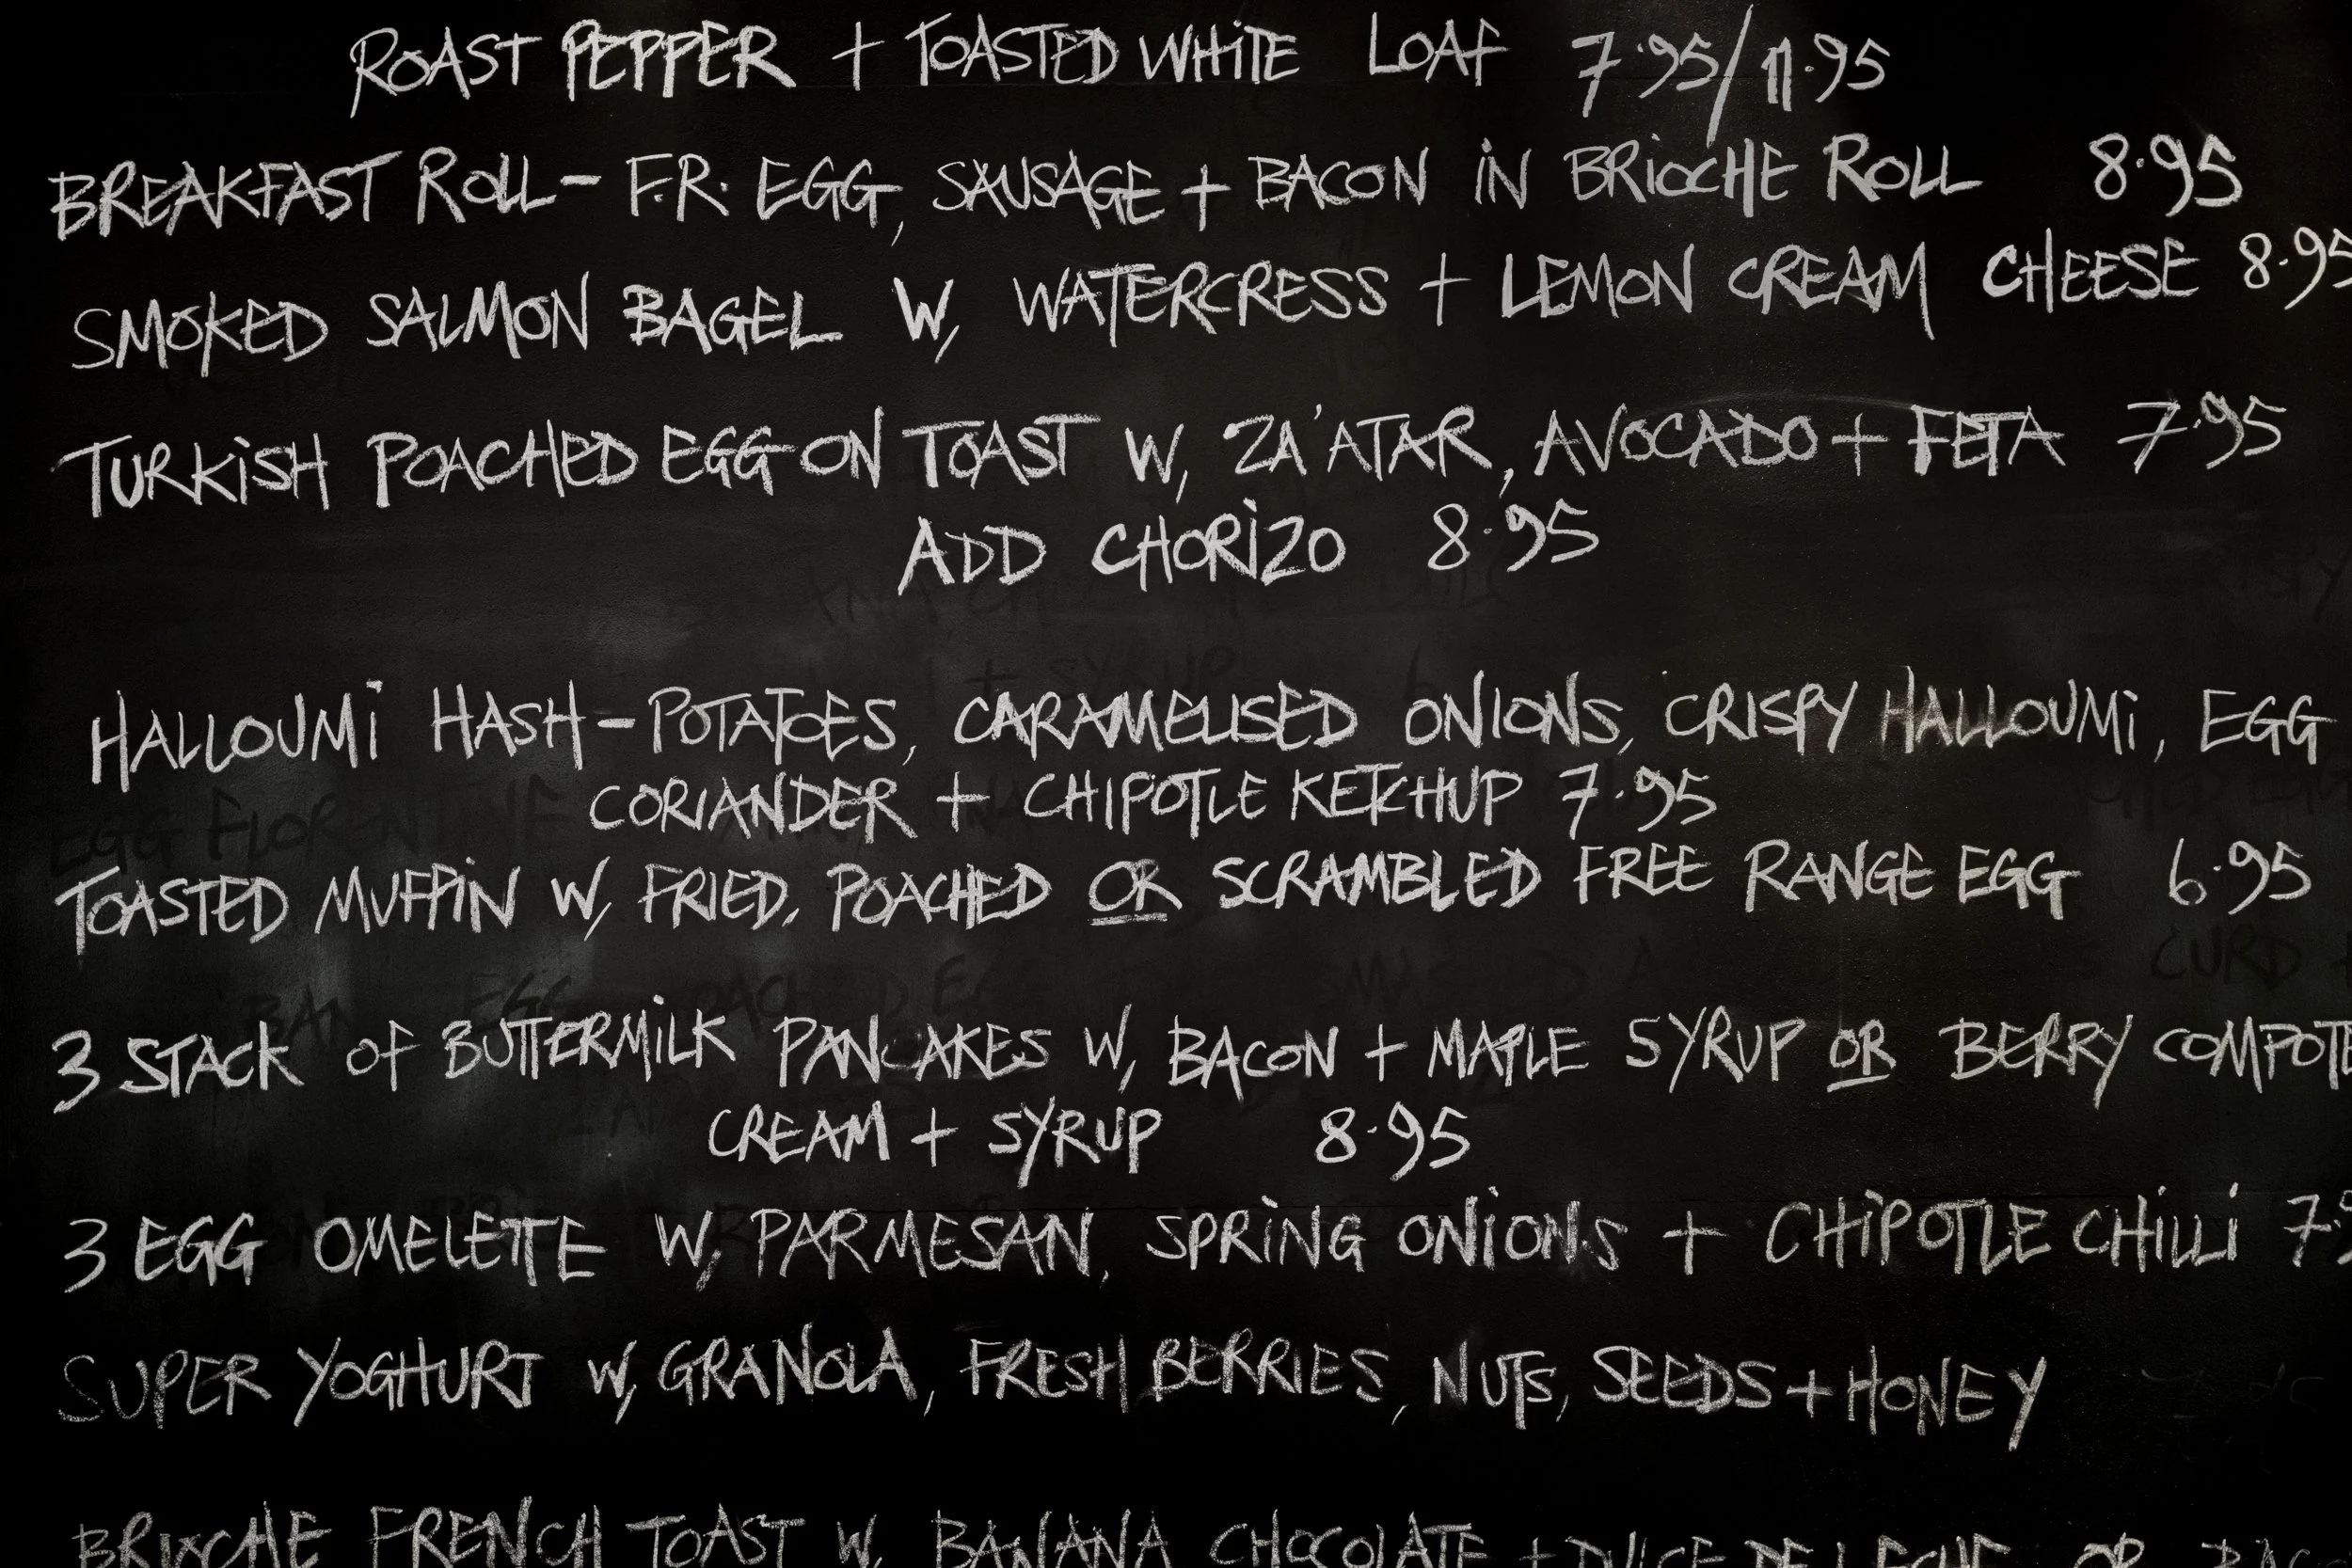 ROAST PEPPER + TOASTED WHITE LOAF 7.95/11.95
BREAKFAST ROLL - F.R. EGG, SAUSAGE + BACON IN BRIOCHE ROLL 8.95
SMOKED SALMON BAGEL W, WATERCRESS + LEMON CREAM CHEESE 8.95
TURKISH POACHED EGG ON TOAST W, ZA'ATAR, AVOCADO + FETA 7.95
ADD CHORIZO 8.95
HALLOUMI HASH - POTATOES, CARAMELISED ONIONS, CRISPY HALLOUMI, EGG
CORIANDER + CHIPOTLE KETCHUP 7.95
TOASTED MUFFIN W, FRIED, POACHED OR SCRAMBLED FREE RANGE EGG 6.95
3 STACK OF BUTTERMILK PANCAKES W, BACON + MAPLE SYRUP OR BERRY COMPOTE
CREAM + SYRUP 8.95
3 EGG OMELETTE W, PARMESAN, SPRING ONIONS + CHIPOTLE CHILLI
SUPER YOGHURT W, GRANOLA, FRESH BERRIES, NUTS, SEEDS + HONEY
BRIOCHE FRENCH TOAST W, BANANA CHOCOLATE + DULCE DE LECHE OR